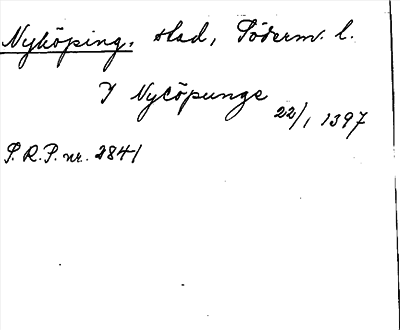 Nyköping, stad, Söderm. l.
I Nycöpunge 22/1 1397
S.R.P. nr. 2841